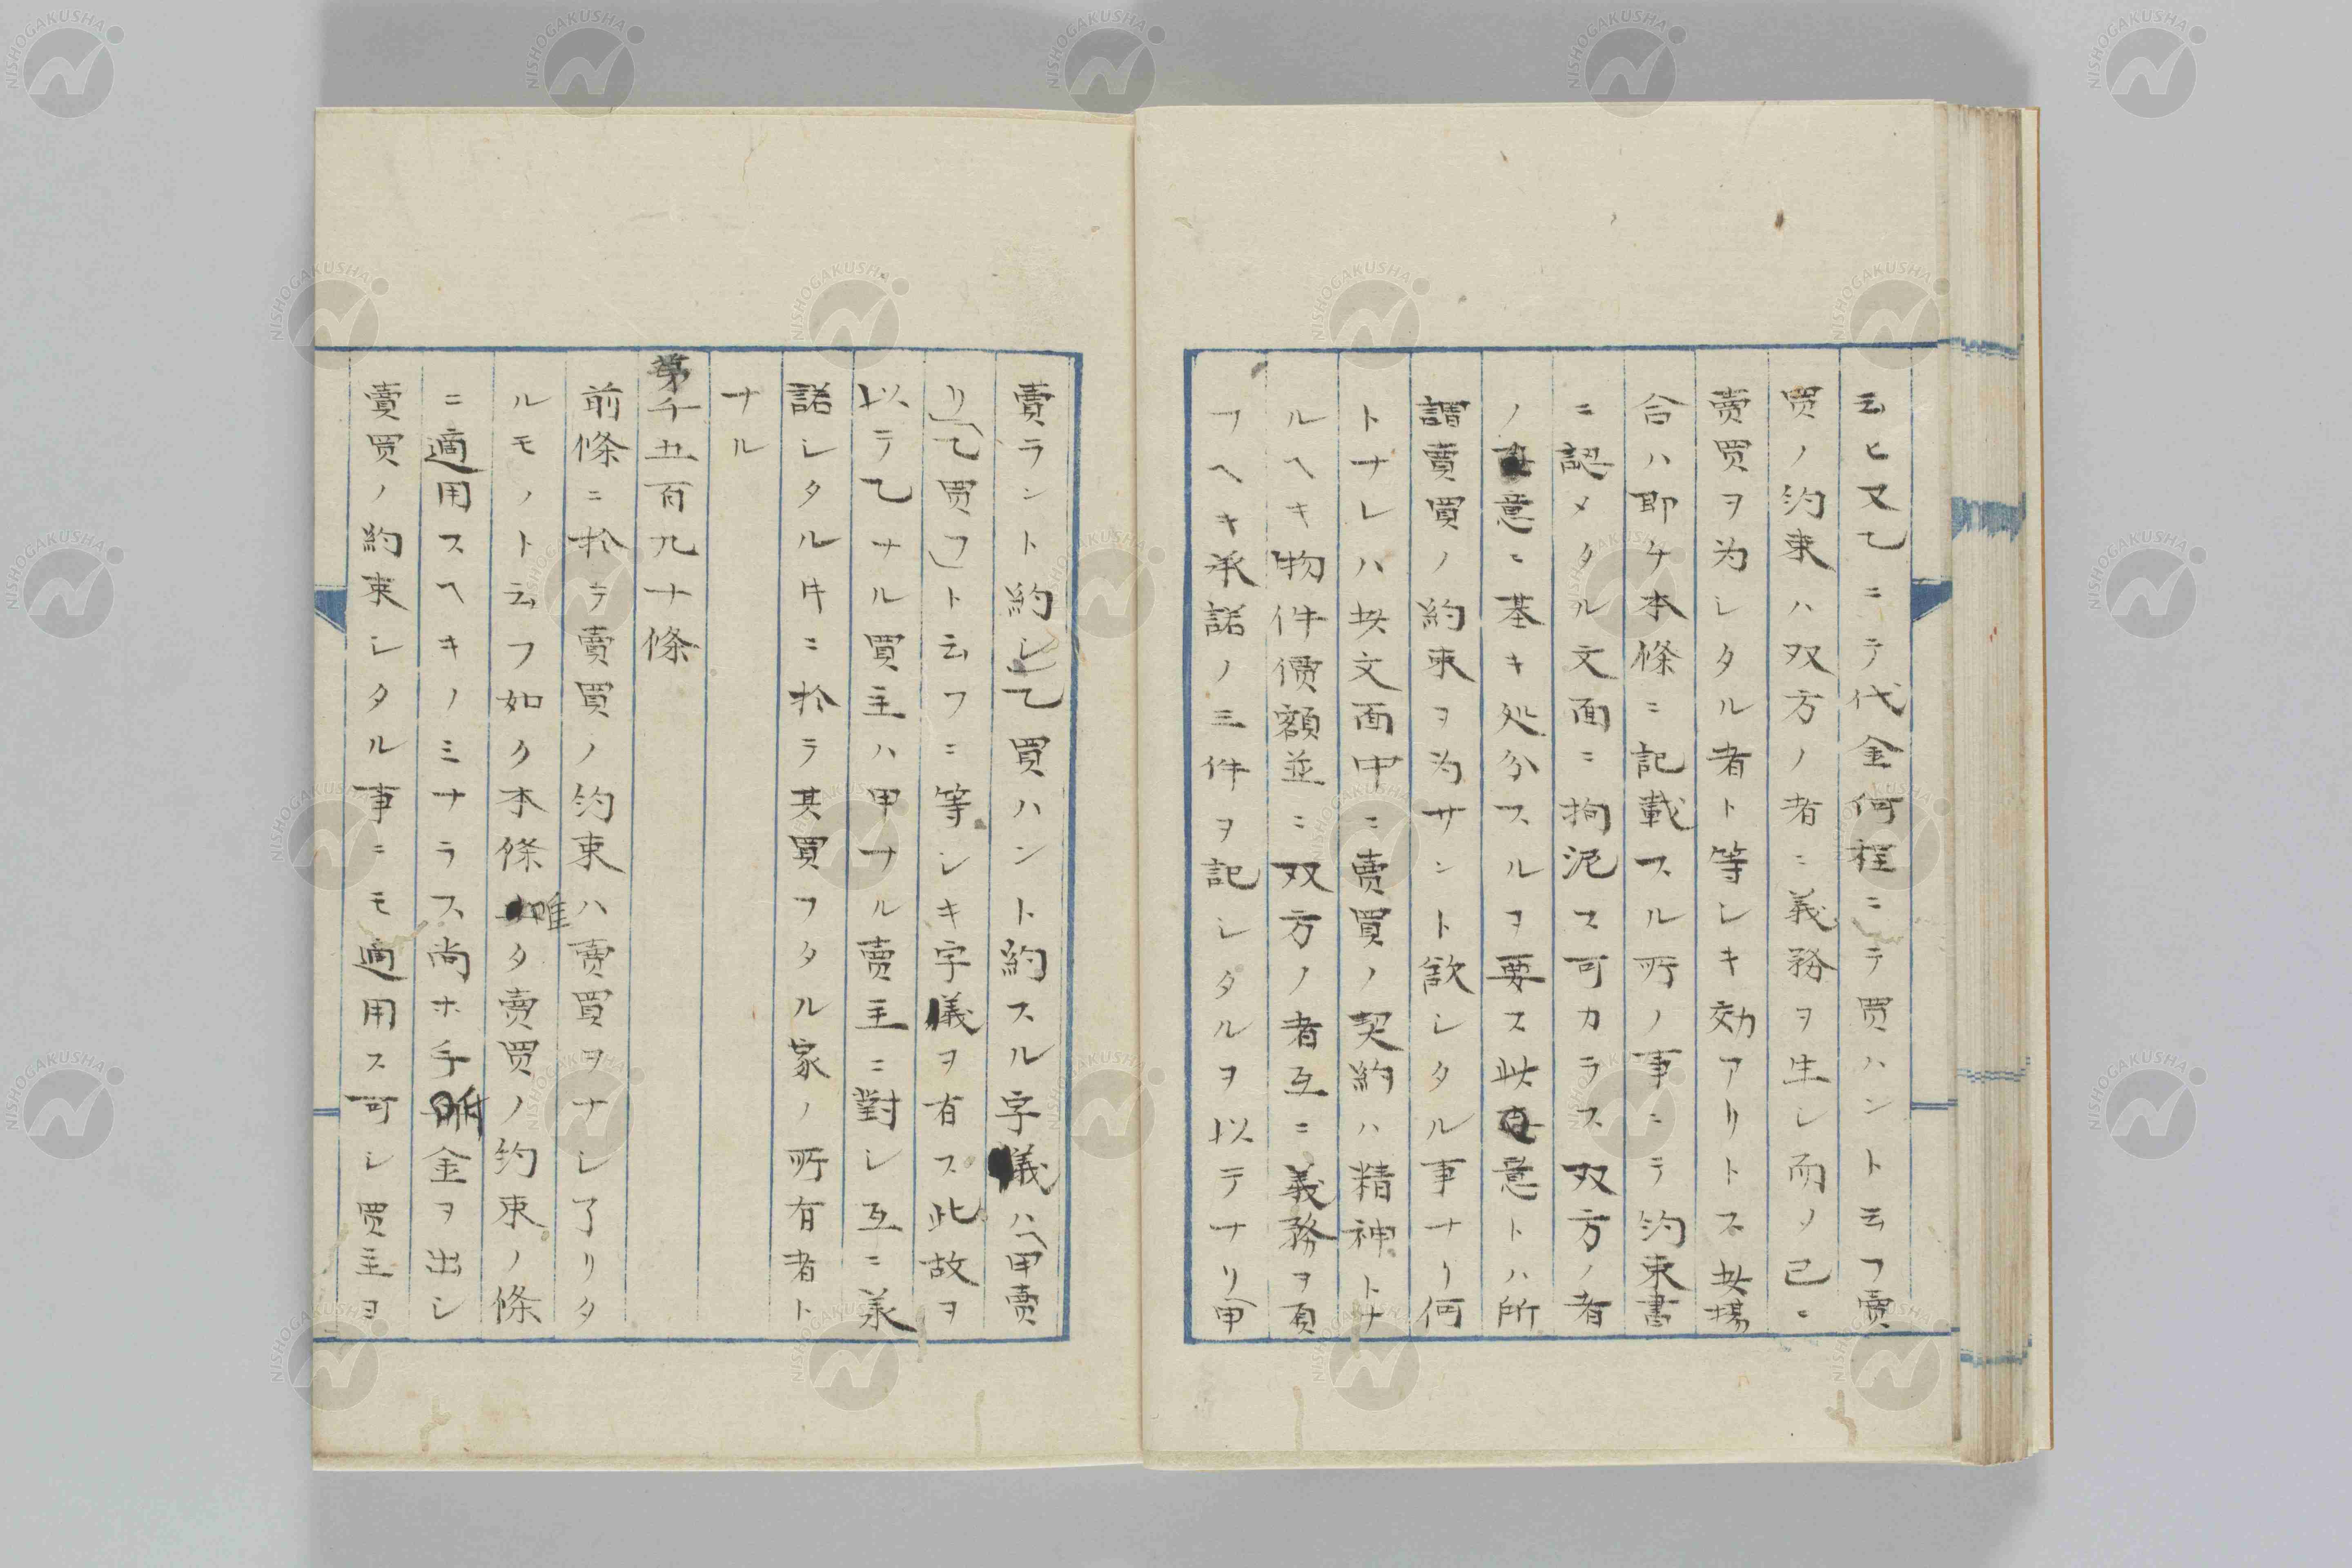 云ヒ又乙ニテ代金何程ニテ買ハント云フ賣
買ノ約束ハ双方ノ者ニ義務ヲ生シ而ノ已ニ
賣買ヲ为シタル者ト等シキ効アリトス其場
合ハ即ケ本條ニ記載スル所ノ事ニテ約束書
ニ認メタル文面ニ拘泥ス可カラス双方ノ者
ノ意ニ基キ処分スルヲ要ス此意トハ所
謂賣買ノ約束ヲ为サント欲シタル事ナリ何
トナレハ其文面中ニ賣買ノ契約ハ精神トナ
ルヘキ物件價額並ニ双方ノ者互ニ義務ヲ負
フヘキ承諾ノ三件ヲ記シタルヲ以テナリ甲
賣ラント約シ乙買ハント約スル字儀ハ「甲賣
リ」「乙買フ」ト云フニ等シキ字儀ヲ有ス此故ヲ
以テ乙ナル買主ハ甲ナル賣主ニ對シ互ニ承
諾シタルキニ於テ其買フタル家ノ所有者ト
ナル
第千五百九十條
前條ニ於テ賣買ノ約束ハ賣買ヲナシ了リタ
ルモノト云フ如ク本條唯タ賣買ノ約束ノ條
ニ適用スヘキノミナラス尚ホ手附金ヲ出シ
賣買ノ約束シタル事ニモ適用ス可シ買主ヨ
NISHOGAKUSHA